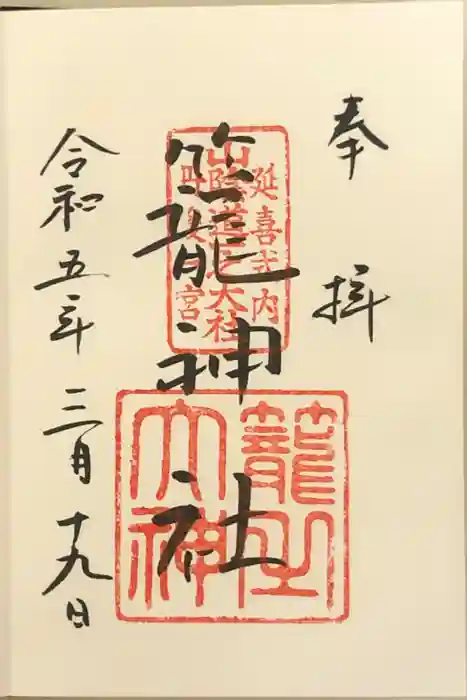 奉拝
延喜式内
山陰道之大社
丹後一宮
籠神社
籠之大神
令和五年三月十九日